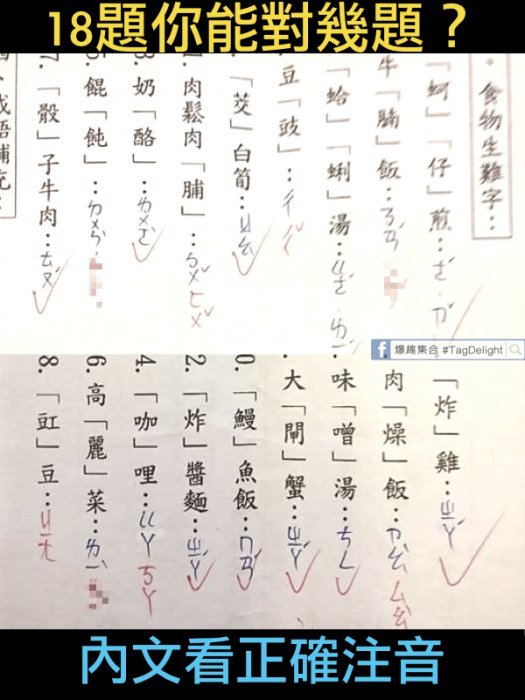 18題你能對幾題？
食物生難字：
「蚵」「仔」煎：ㄜˊ
牛「腩」飯：ㄋㄢ
「蛤」「蜊」湯：ㄍㄜˊ ㄌㄧˊ
豆「豉」：ㄔ ㄔˇ
「茭」白筍：ㄐㄠ
肉鬆肉「脯」：ㄆㄨˇ ㄈㄨˇ
3. 奶「酪」：ㄌㄨㄛˋ
5. 餛「飩」：
7. 「骰」子牛肉：ㄊㄡˊ
成語補充：
爆趣集合 #TagDelight
「炸」雞：ㄓㄚˊ
肉「燥」飯：ㄗㄠˋ ㄙㄠˋ
味「噌」湯：ㄘㄥ
大「閘」蟹：ㄓㄚˊ
0. 「鰻」魚飯：ㄇㄢˊ
2. 「炸」醬麵：ㄓㄚˊ
4. 「咖」哩：ㄍㄚ ㄎㄚ
6. 高「麗」菜：ㄌㄧˋ
8. 「豇」豆：ㄐㄧㄤ
內文看正確注音